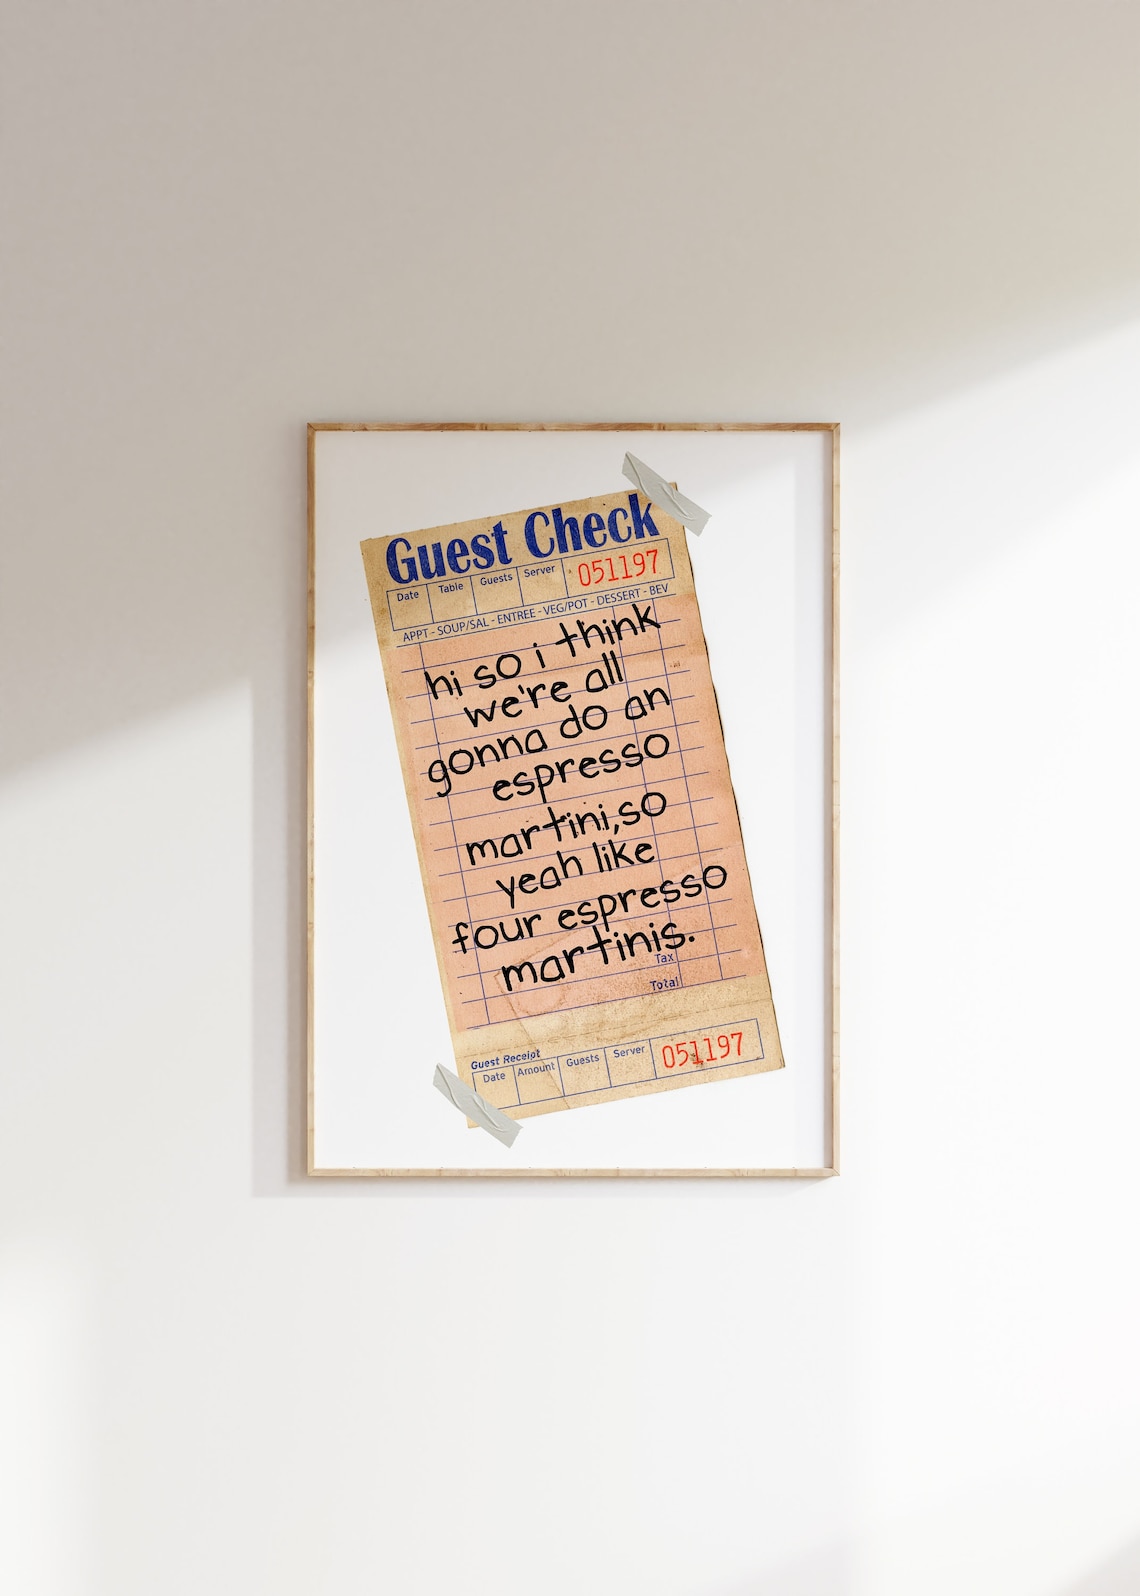 Guest Check
Date Table Guests Server 051197
APPT - SOUP/SAL - ENTREE - VEG/POT - DESSERT - BEV
hi so i think
we're all
gonna do an
espresso
martini,so
yeah like
four espresso
martinis.
Tax
Total
Guest Receipt
Date Amount Guests Server 051197